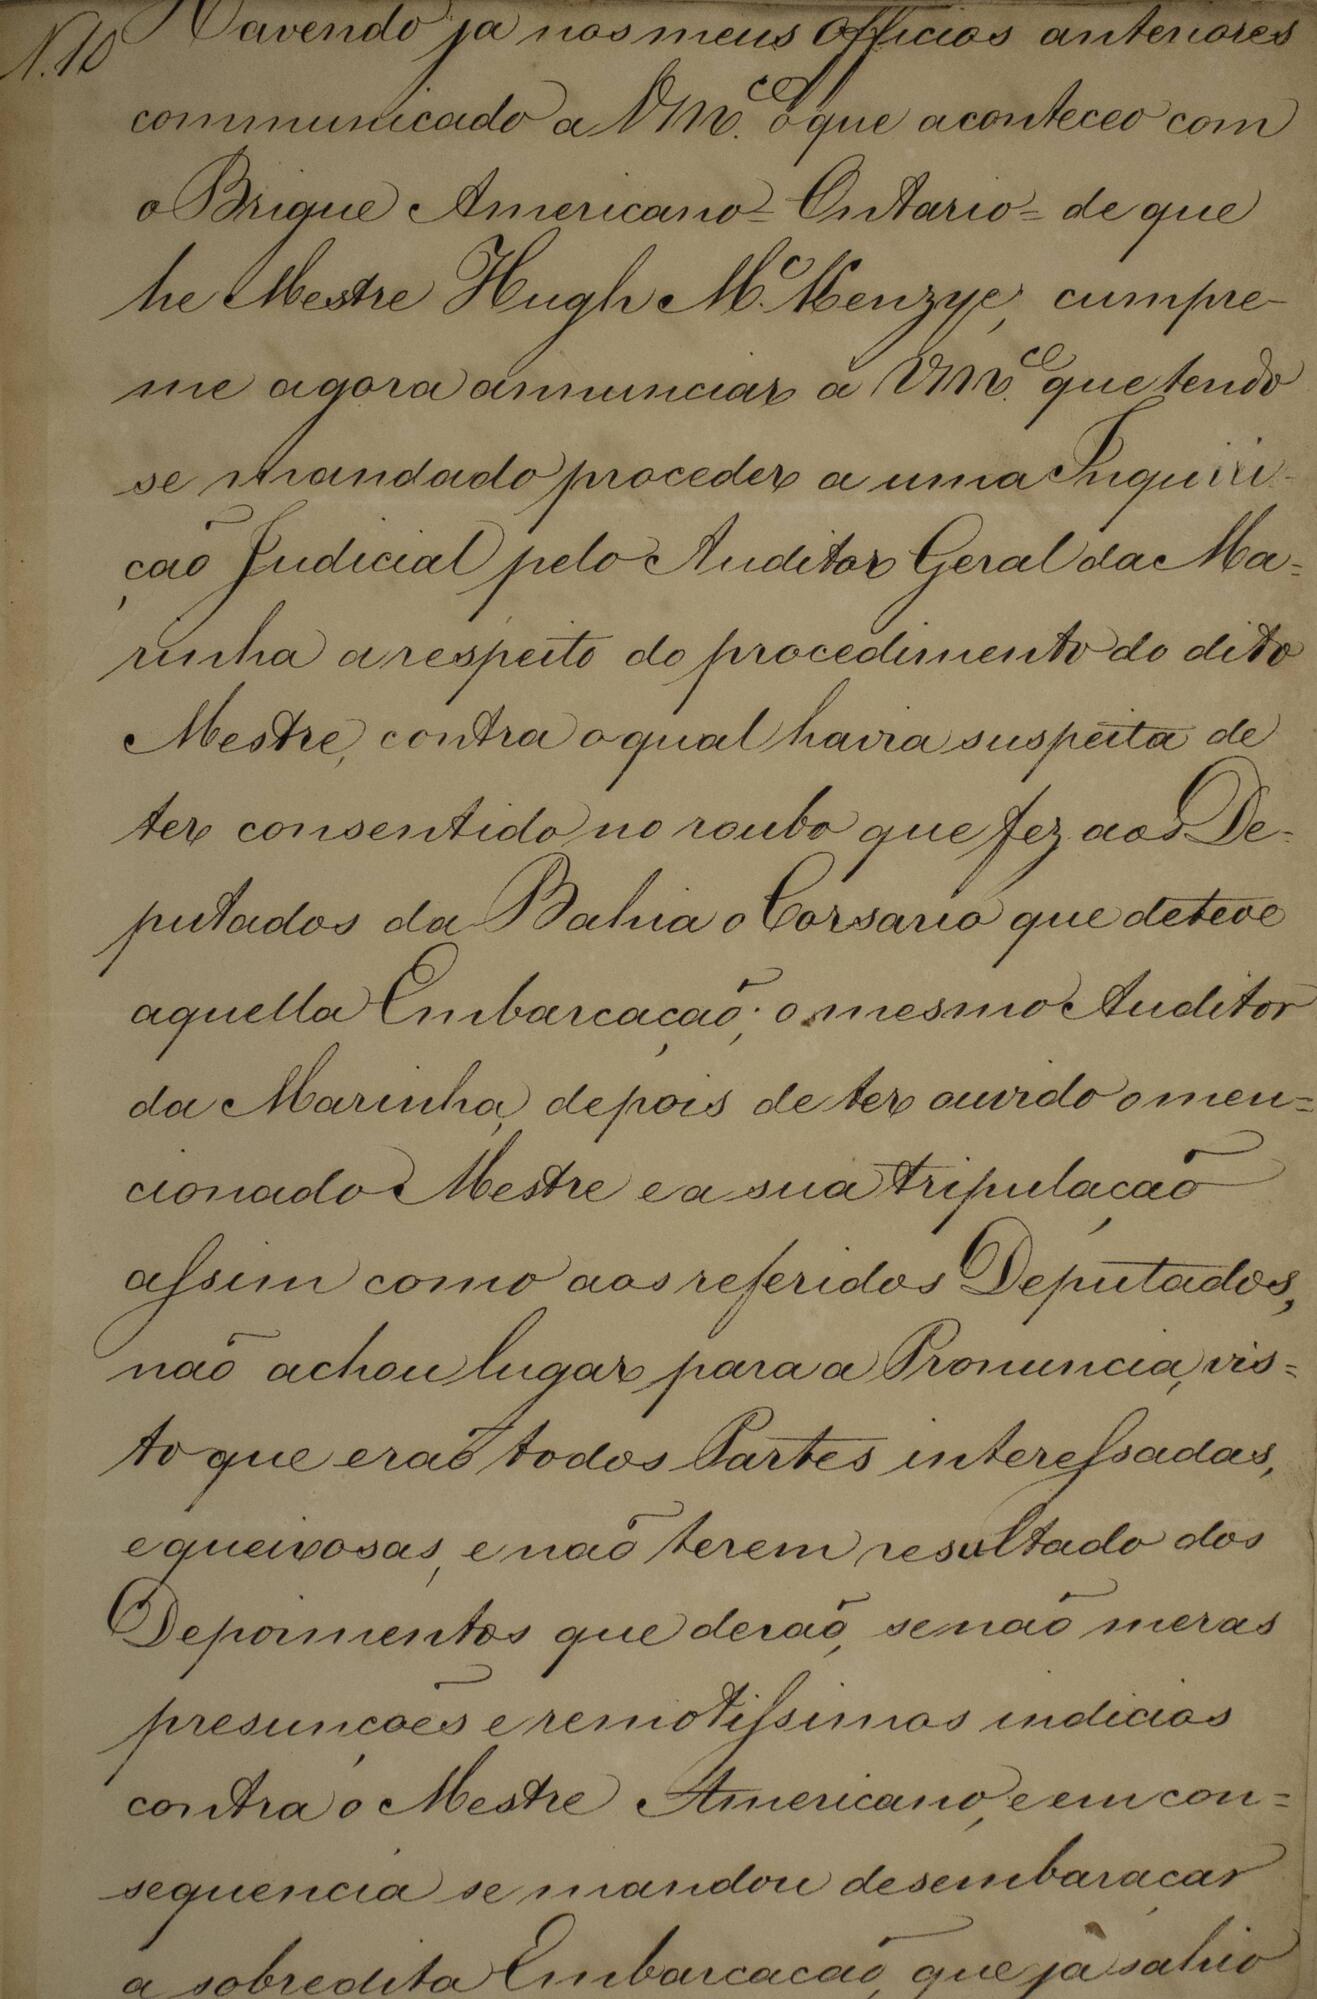 N. 10 Havendo ja nos meus Officios anteriores
communicado a VM.ce o que aconteceo com
o Brigue Americano = Ontario = de que
he Mestre Hugh Mc. Kenzye, cumpre-
me agora annunciar a VM.ce que tendo
se mandado proceder a uma Inquiri-
ção Judicial pelo Auditor Geral da Ma=
rinha a respeito do procedimento do dito
Mestre, contra o qual havia suspeita de
ter consentido no roubo que fez aos De-
putados da Bahia o Corsario que deteve
aquella Embarcação; o mesmo Auditor
da Marinha, depois de ter ouvido o men=
cionado Mestre e a sua tripulação
assim como aos referidos Deputados,
não achou lugar para a Pronuncia, vis=
to que erão todos Partes interessadas,
e queixosas, e não terem resultado dos
Depoimentos que derão, senão meras
presunções e remotissimos indicios
contra o Mestre Americano, e em con=
sequencia se mandou desembaraçar
a sobredita Embarcação, que já sahio